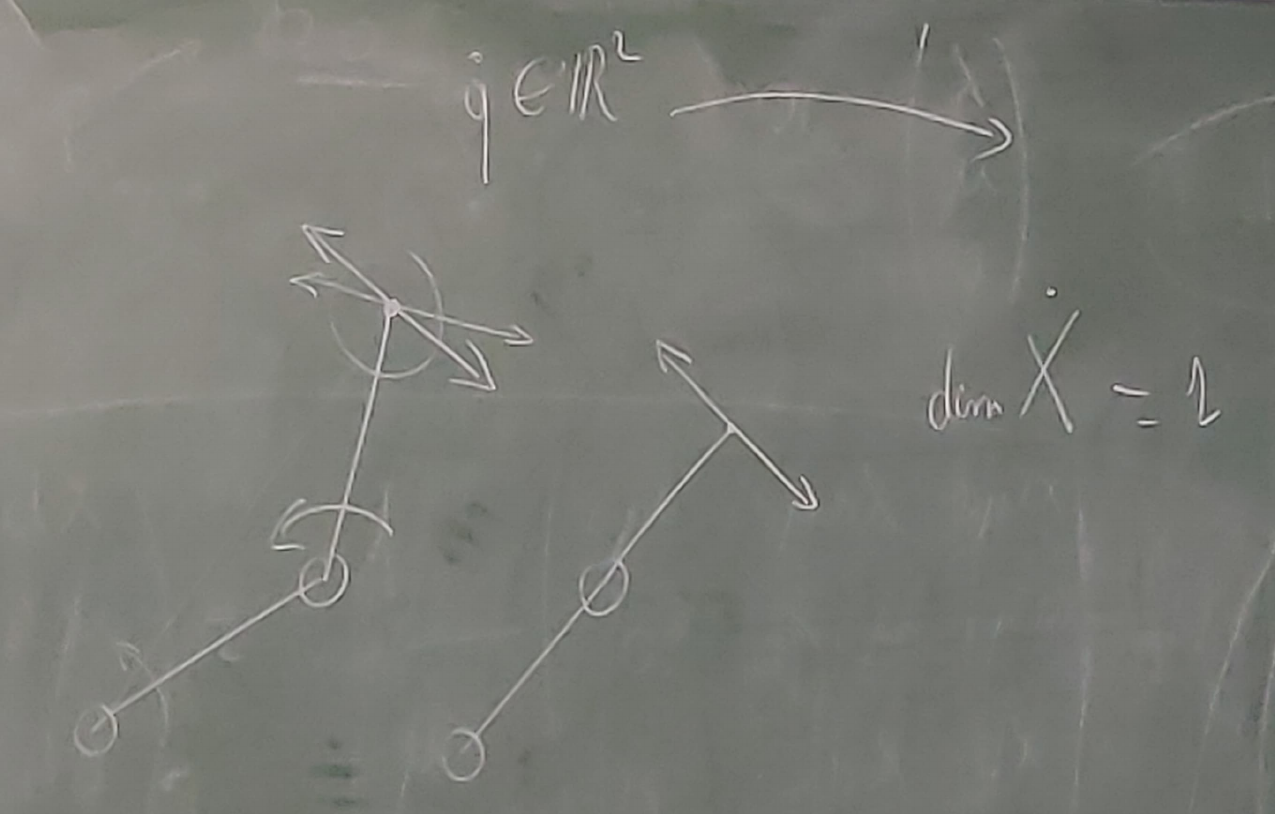 q̇ ∈ ℝ²
dim Ẋ = 1